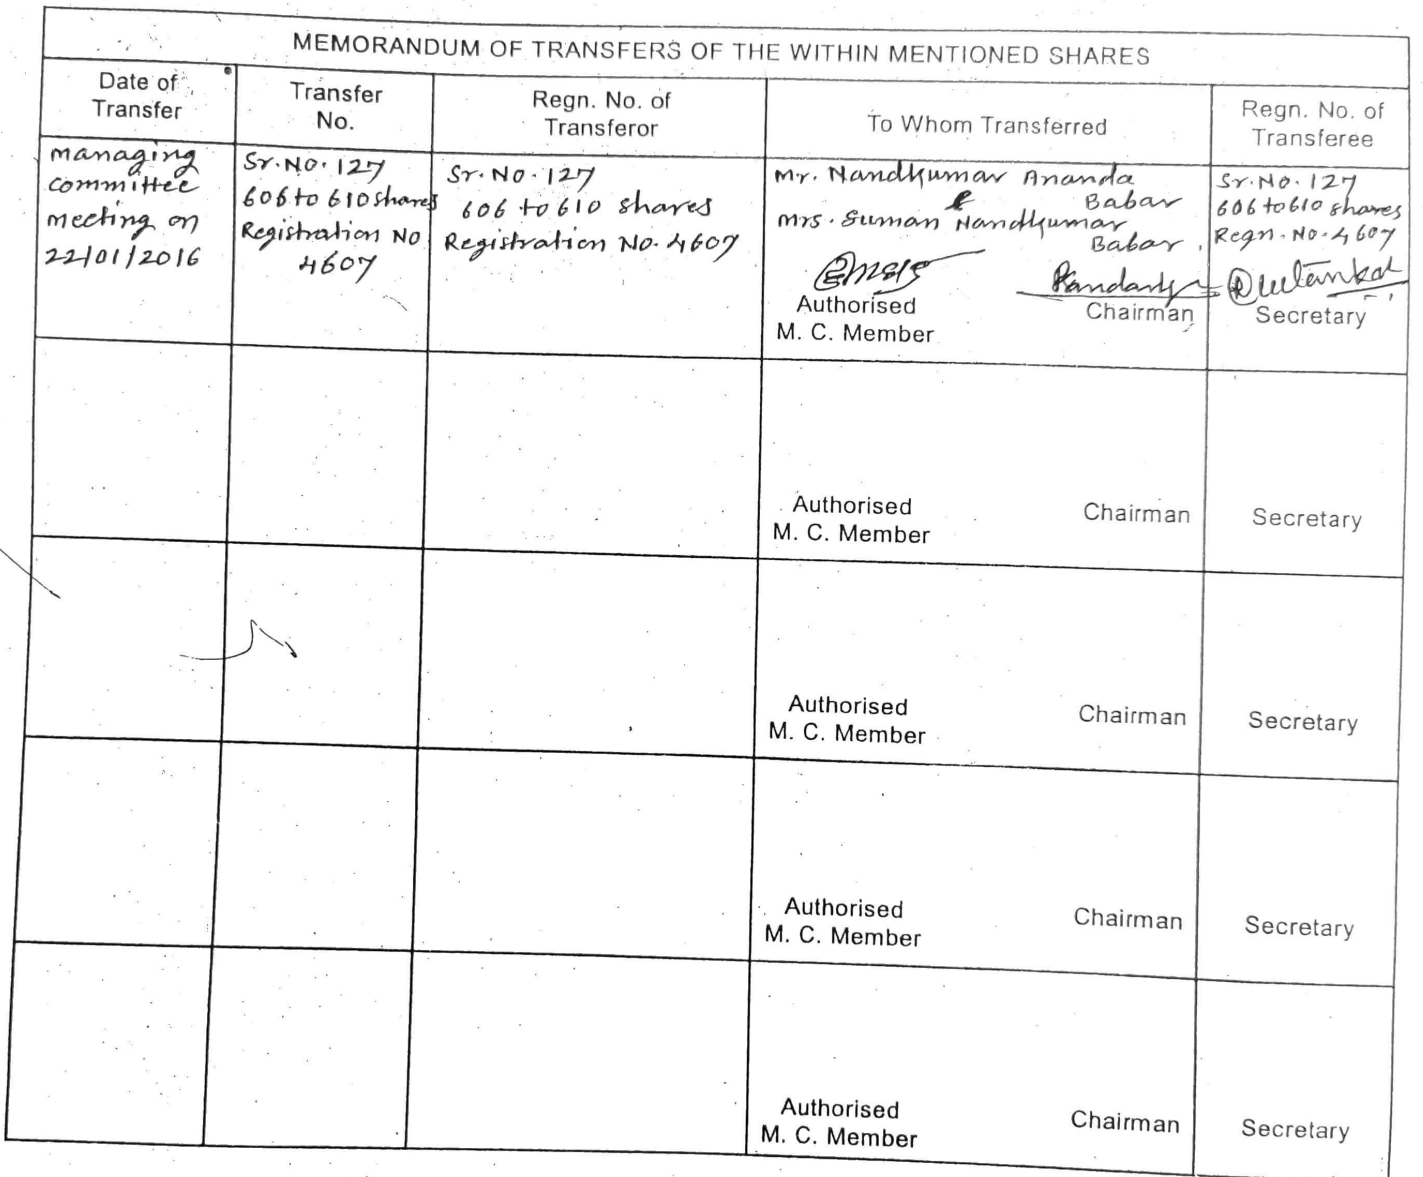 MEMORANDUM OF TRANSFERS OF THE WITHIN MENTIONED SHARES
Date of
Transfer
Transfer
No.
Regn. No. of
Transferor
To Whom Transferred
Regn. No. of
Transferee
managing
committee
meeting on
22/01/2016
Sr. No. 127
606 to 610 shares
Registration No
4607
Sr. No. 127
606 to 610 shares
Registration No. 4607
Mr. Nandkumar Ananda
Babar
&
Mrs. Suman Nandkumar
Babar
Authorised
M. C. Member
Chairman
Sr. No. 127
606 to 610 shares
Regn. No. 4607
Secretary
Authorised
M. C. Member
Chairman
Secretary
Authorised
M. C. Member
Chairman
Secretary
Authorised
M. C. Member
Chairman
Secretary
Authorised
M. C. Member
Chairman
Secretary